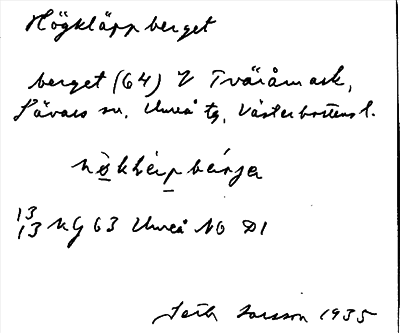 Högkläppberget
berget (64) V Tväråmark,
Sävars sn. Umeå tg, Västerbottens l.
13
13 NG 63 Umeå NO D1
Larsson 1935